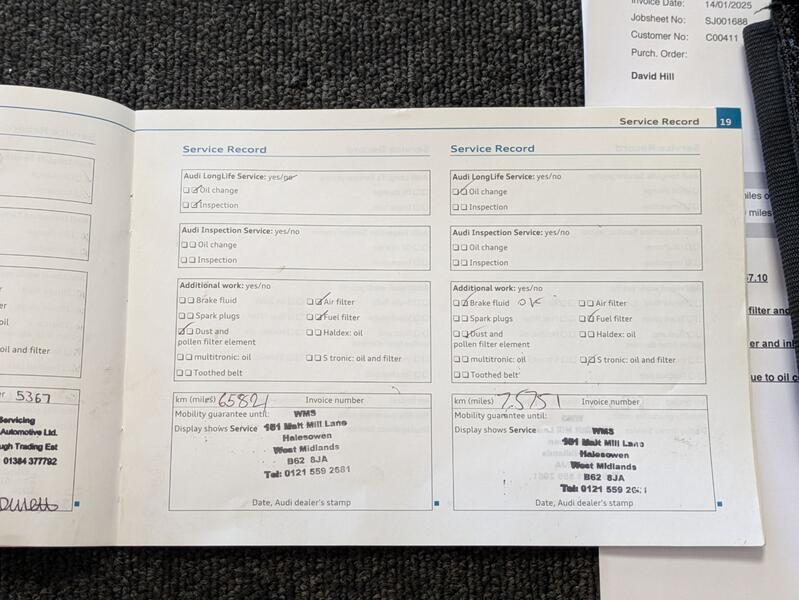 Invoice Date: 14/01/2025
Jobsheet No: SJ001688
Customer No: C00411
Purch. Order:
David Hill
Service Record 19
Service Record
Audi LongLife Service: yes/no
Oil change
Inspection
Audi Inspection Service: yes/no
Oil change
Inspection
Additional work: yes/no
Brake fluid
Air filter
Spark plugs
Fuel filter
Dust and
pollen filter element
Haldex: oil
multitronic: oil
S tronic: oil and filter
Toothed belt
km (miles) 65821
Invoice number
Mobility guarantee until:
Display shows Service
WMS
181 Malt Mill Lane
Halesowen
West Midlands
B62 8JA
Tel: 0121 559 2681
Date, Audi dealer's stamp
Service Record
Audi LongLife Service: yes/no
Oil change
Inspection
Audi Inspection Service: yes/no
Oil change
Inspection
Additional work: yes/no
Brake fluid OK
Air filter
Spark plugs
Fuel filter
Dust and
pollen filter element
Haldex: oil
multitronic: oil
S tronic: oil and filter
Toothed belt
km (miles) 75751
Invoice number
Mobility guarantee until:
Display shows Service
WMS
Malt Mill Lane
Halesowen
West Midlands
B62 8JA
Tel: 0121 559
Date, Audi dealer's stamp
oil and filter
5367
Servicing
Automotive Ltd.
Trading Est
01384 377792
miles
7.10
filter and
er and
ue to oil